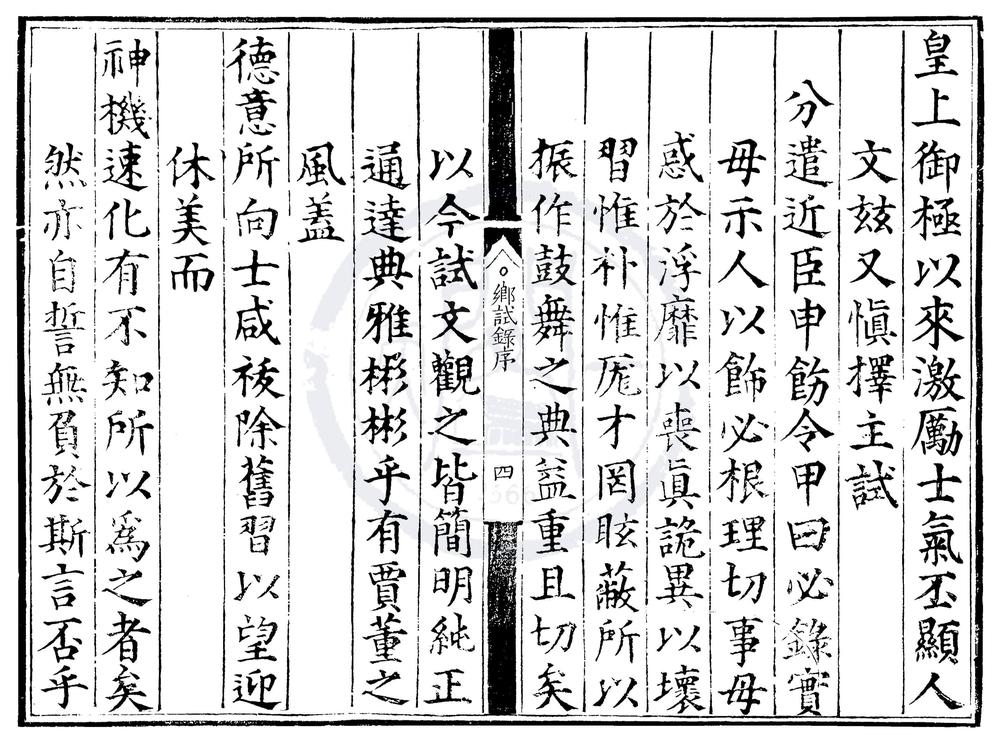 皇上御極以來激厲士氣丕顯人
文玆又愼擇主試
分遣近臣申飭令甲曰必錄實
毋示人以飾必根理切事毋
惑於浮靡以喪眞詭異以壞
習惟朴惟厖才罔眩蔽所以
振作鼓舞之典益重且切矣
鄉試錄序
四
以今試文觀之皆簡明純正
通達典雅彬彬乎有賈董之
風蓋
德意所向士咸祓除舊習以望迎
休美而
神機速化有不知所以爲之者矣
然亦自誓無負於斯言否乎